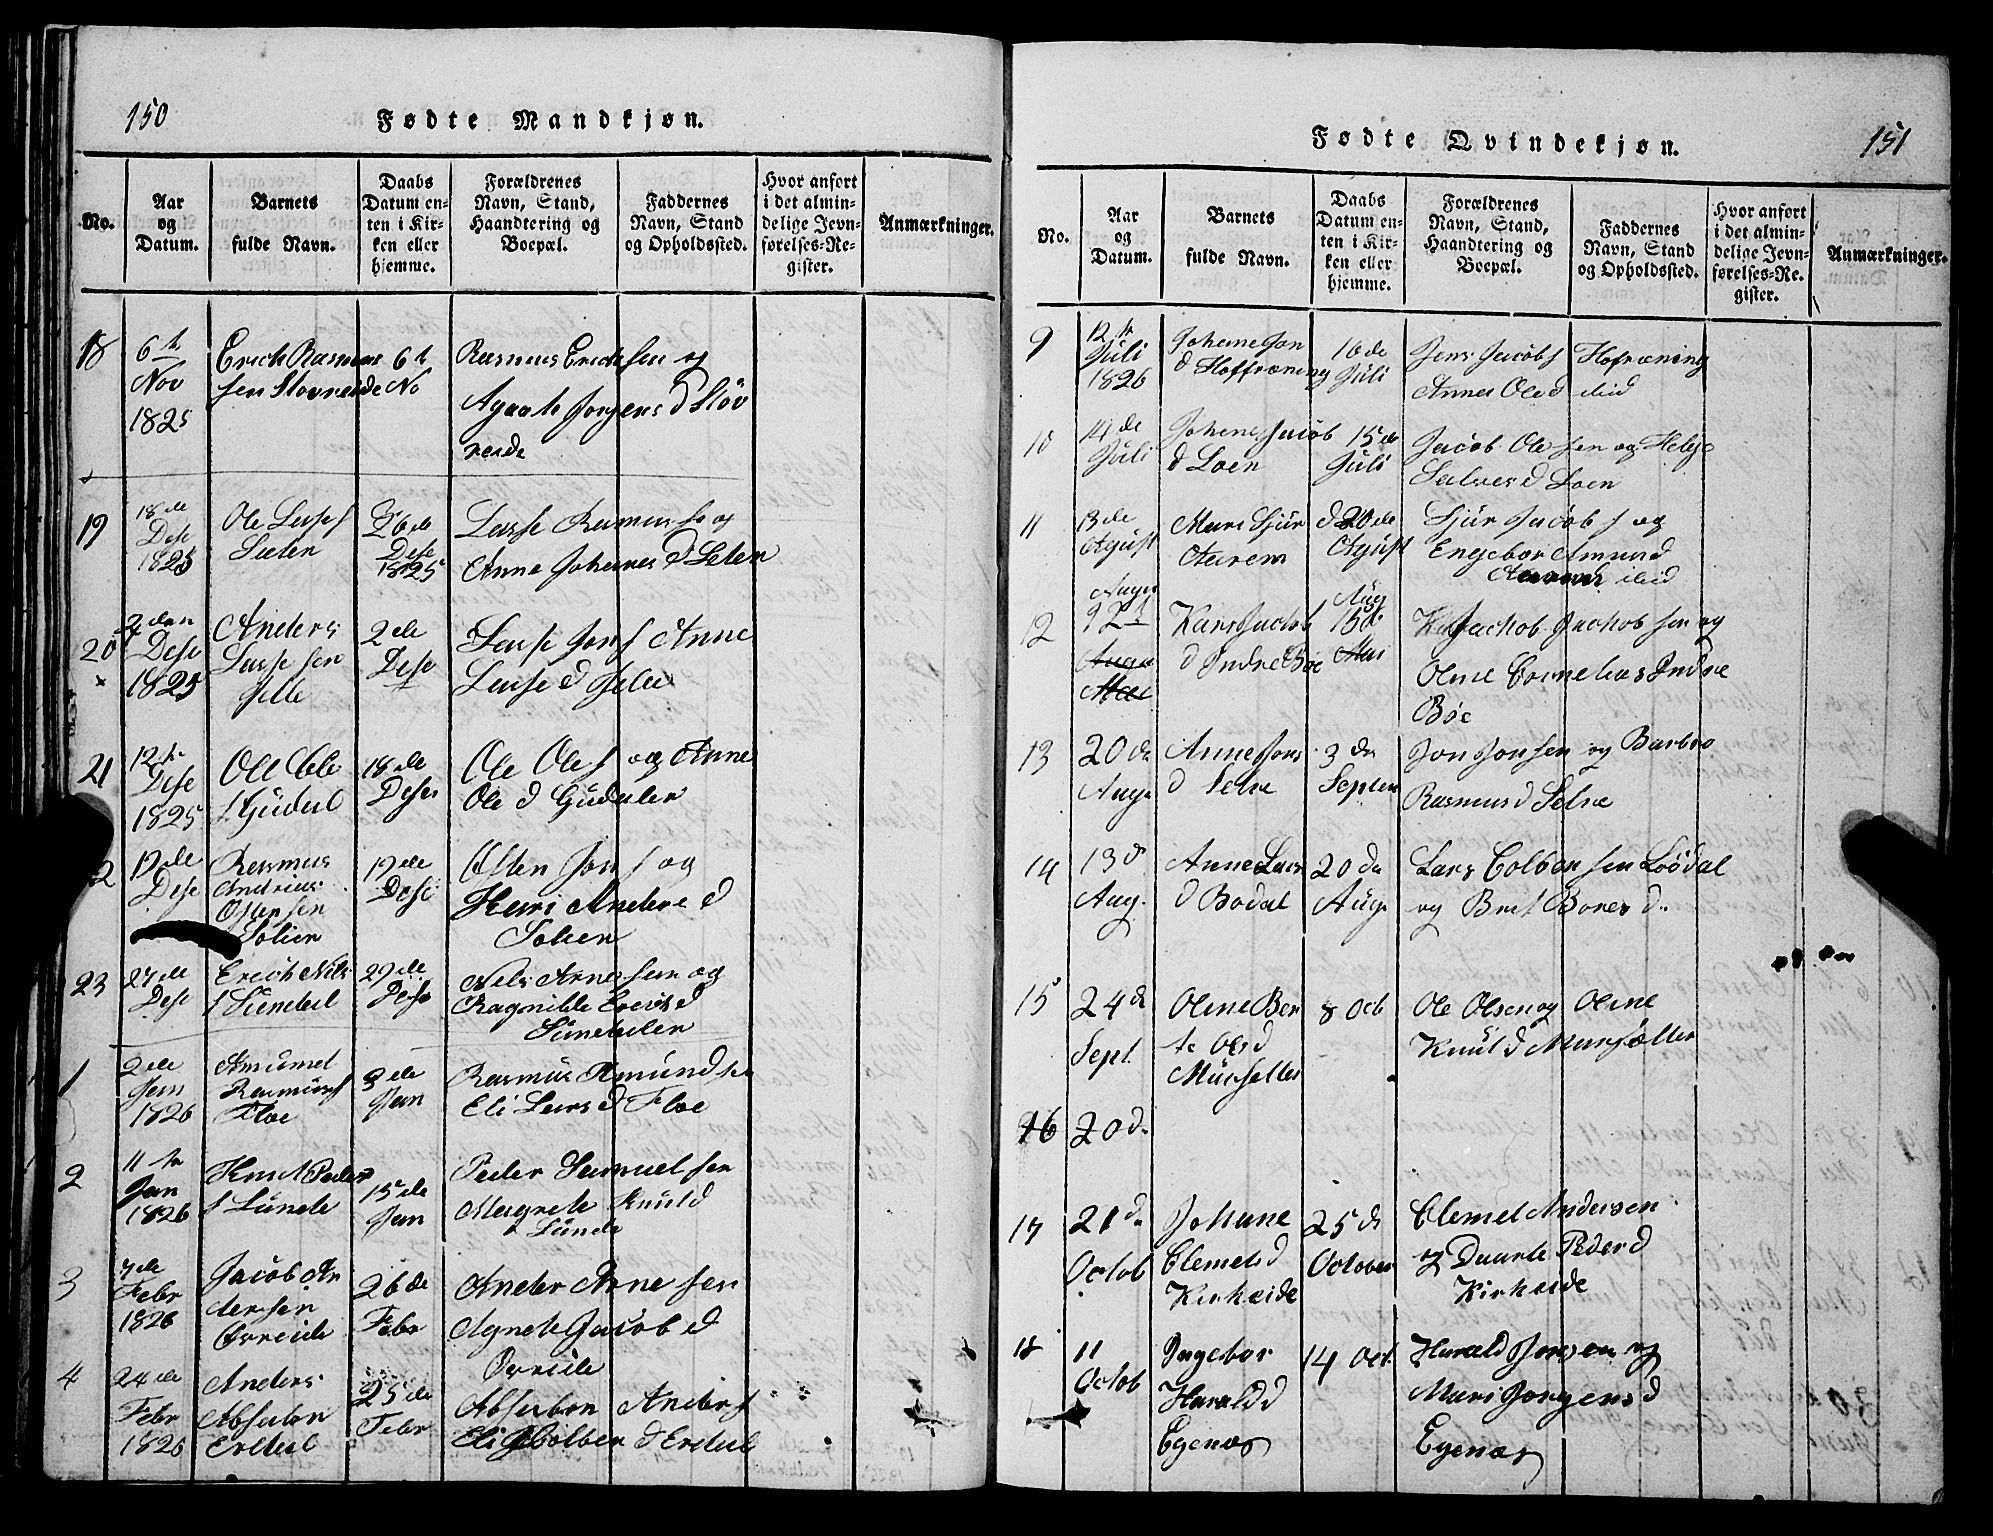 150
Fødte Mandkjøn.
No.
Aar
og
Datum.
Barnets
fulde Navn.
Daabs
Datum en-
ten i Kir-
ken eller
hjemme.
Forældrenes
Navn, Stand,
Haandtering og
Boepæl.
Faddernes
Navn, Stand
og Opholdssted.
Hvor anført
i det almin-
delige Jevn-
førelses-Re-
gister.
Anmærkninger.
18
6t
Nov
1825
Erich Rasmus
sen Stovreide
6t
No
Rasmus Erichsen og
Agaate Jorgens d Støv
reide
19
18de
Dese
1825
Ole Lasse s
Sæten
26de
Dese
1825
Lasse Rasmus s og
Anne Johanes d Seten
20
2den
Dese
1825
Anders
Lasse sen
Gille
2de
Dese
Lasse Jon s Anne
Lasse d
21
12te
Dese
1825
Ole Ole
s Gudal
18de
Deser
Ole Ole s og Anne
Ole d Gudalen
2
19de
Dese
Rasmus
Andreas
Ostensen
Solien
19de
Dese
Osten Jon s og
Hari Andre d
Solien
23
27de
Dese
Erich Nils
s Sundal
29de
Dese
Nils Arne sen og
Ragnilde Erichs d
Sundalen
1
2de
Jan
1826
Amund
Rasmus s
Floe
3de
Jan
Rasmus Amund sen
Eli Lars d Floe
2
11te
Jan
1826
Knut Peder
s Lunde
15de
Jan
Peder Samuel sen
Magrete Knut d
Lunde
3
7de
Febr
1826
Jacob An
dersen
Øvreide
26de
Febr
Ander Arne sen
Agnete Jacob d
Øvreide
4
24de
Febr
1826
Anders
Absalon
Erdal
25de
Febr
Absalon Anders s
Eli Colben d Erdal
151
Fødte Qvindekjøn.
No.
Aar
og
Datum.
Barnets
fulde Navn.
Daabs
Datum en-
ten i Kir-
ken eller
hjemme.
Forældrenes
Navn, Stand,
Haandtering og
Boepæl.
Faddernes
Navn, Stand
og Opholdssted.
Hvor anført
i det almin-
delige Jevn-
førelses-Re-
gister.
Anmærkninger.
9
12te
Juli
1826
Johane Jon
d Hoffræning
16de
Juli
Jens Jacob s Hofræning
Anne Ole d ibid
10
14de
Juli
Johane Jacob
d Loen
15de
Juli
Jacob Ole sen og Helge
Salves d Loen
11
13de
Agust
Mari Sjur d
Aarem
20de
Agust
Sjur Jacob s og
Engebor Amund d
ibid
12
Augu
12t
Kari Jacob
d Indre Bøe
Aug
13de
Mai
Jachob Jachob sen og
Oline Cornelias Indre
Bøe
13
20de
Augu
Anne Jons
d Selve
3de
Septem
Jon Jonsen og Barbro
Rasmus d Selve
14
13d
Aug.
Anne Lars
d Bødal
20de
Augu
Lars Colben sen Løødal
og Brit Bones d.
15
24de
Sept
Oline Ber
te Ols d
8 Octb
Ole Olsen og Oline
Knut d
16
20d.
17
21d.
Octob
Johane
Clemets d
Kirkeide
25de
October
Clemet Andersen
og Daarte Peder d
Kirkeide
18
11
Octob
Ingebor
Harald d
Egenæs
14 Oct.
Harald Jonsen og
Mari Jorgens d
Egenæs